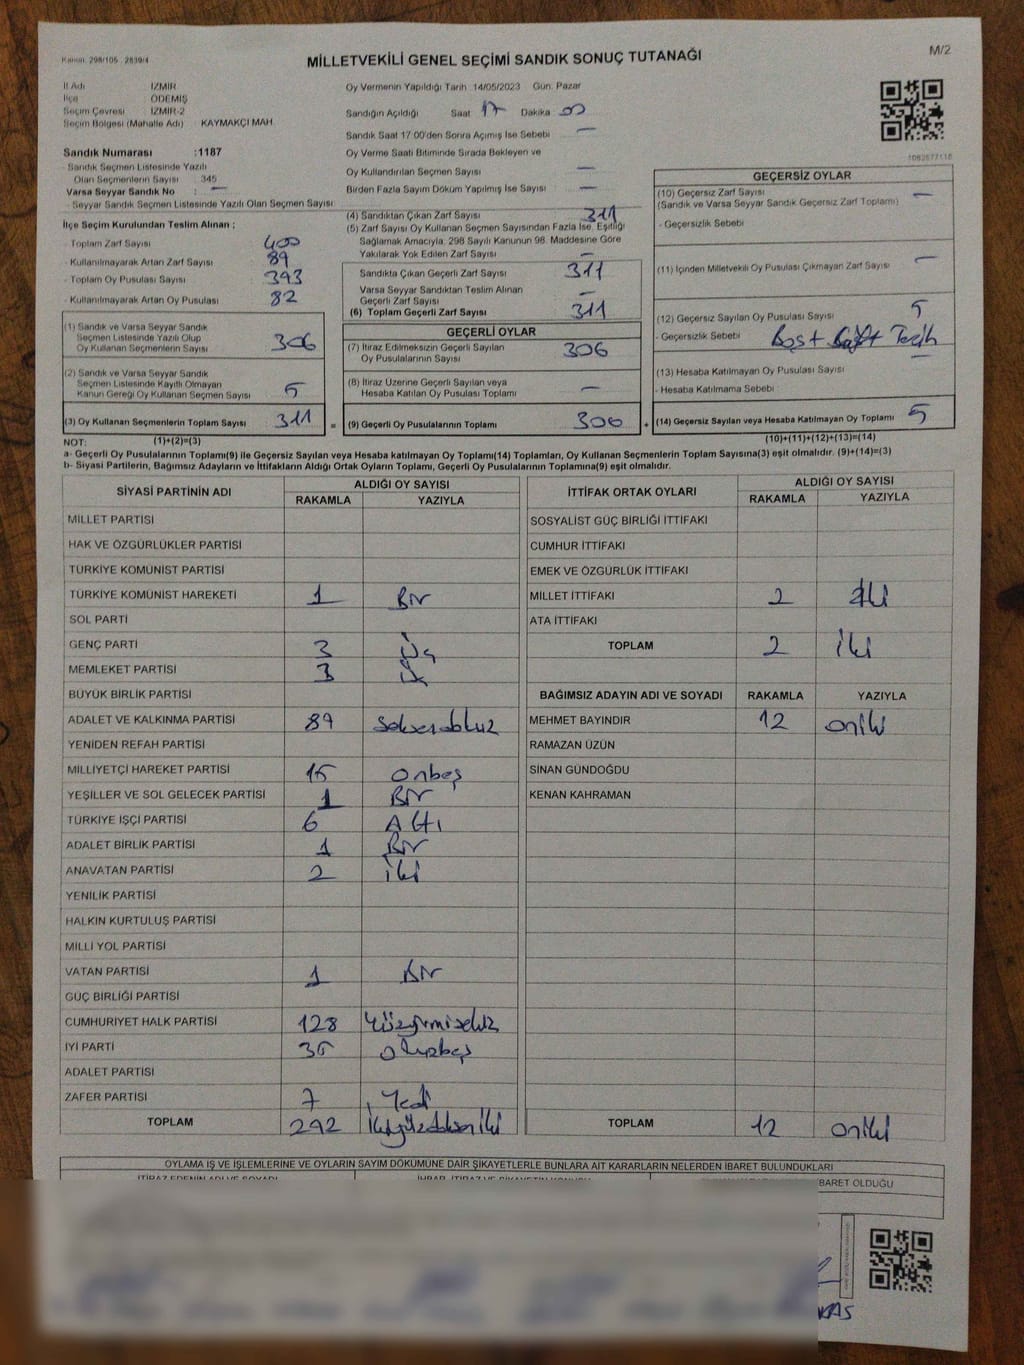 Kanun: 298/105 - 2839/4
M/2
MİLLETVEKİLİ GENEL SEÇİMİ SANDIK SONUÇ TUTANAĞI
İl Adı İZMİR
İlçe ÖDEMİŞ
Seçim Çevresi İZMİR-2
Seçim Bölgesi (Mahalle Adı) KAYMAKÇI MAH.
Sandık Numarası :1187
- Sandık Seçmen Listesinde Yazılı
Olan Seçmenlerin Sayısı 345
Varsa Seyyar Sandık No : —
- Seyyar Sandık Seçmen Listesinde Yazılı Olan Seçmen Sayısı
İlçe Seçim Kurulundan Teslim Alınan ;
- Toplam Zarf Sayısı 400
- Kullanılmayarak Artan Zarf Sayısı 89
- Toplam Oy Pusulası Sayısı 393
- Kullanılmayarak Artan Oy Pusulası 82
(1) Sandık ve Varsa Seyyar Sandık
Seçmen Listesinde Yazılı Olup
Oy Kullanan Seçmenlerin Sayısı 306
(2) Sandık ve Varsa Seyyar Sandık
Seçmen Listesinde Kayıtlı Olmayan
Kanun Gereği Oy Kullanan Seçmen Sayısı 5
(3) Oy Kullanan Seçmenlerin Toplam Sayısı 311
Oy Vermenin Yapıldığı Tarih 14/05/2023 Gün: Pazar
Sandığın Açıldığı Saat 17 Dakika 00
Sandık Saat 17:00'den Sonra Açımış İse Sebebi —
Oy Verme Saati Bitiminde Sırada Bekleyen ve
Oy Kullandırılan Seçmen Sayısı —
Birden Fazla Sayım Döküm Yapılmış İse Sayısı —
(4) Sandıktan Çıkan Zarf Sayısı 311
(5) Zarf Sayısı Oy Kullanan Seçmen Sayısından Fazla İse, Eşitliği
Sağlamak Amacıyla; 298 Sayılı Kanunun 98. Maddesine Göre
Yakılarak Yok Edilen Zarf Sayısı —
Sandıkta Çıkan Geçerli Zarf Sayısı 311
Varsa Seyyar Sandıktan Teslim Alınan
Geçerli Zarf Sayısı —
(6) Toplam Geçerli Zarf Sayısı 311
GEÇERLİ OYLAR
(7) İtiraz Edilmeksizin Geçerli Sayılan
Oy Pusulalarının Sayısı 306
(8) İtiraz Üzerine Geçerli Sayılan veya
Hesaba Katılan Oy Pusulası Toplamı —
= (9) Geçerli Oy Pusulalarının Toplamı 306
1082677118
GEÇERSİZ OYLAR
(10) Geçersiz Zarf Sayısı —
(Sandık ve Varsa Seyyar Sandık Geçersiz Zarf Toplamı)
- Geçersizlik Sebebi
(11) İçinden Milletvekili Oy Pusulası Çıkmayan Zarf Sayısı —
(12) Geçersiz Sayılan Oy Pusulası Sayısı 5
- Geçersizlik Sebebi Boş+ Tercih
(13) Hesaba Katılmayan Oy Pusulası Sayısı —
- Hesaba Katılmama Sebebi
+ (14) Geçersiz Sayılan veya Hesaba Katılmayan Oy Toplamı 5
NOT: (1)+(2)=(3) (10)+(11)+(12)+(13)=(14)
a- Geçerli Oy Pusulalarının Toplamı(9) ile Geçersiz Sayılan veya Hesaba katılmayan Oy Toplamı(14) Toplamları, Oy Kullanan Seçmenlerin Toplam Sayısına(3) eşit olmalıdır. (9)+(14)=(3)
b- Siyasi Partilerin, Bağımsız Adayların ve İttifakların Aldığı Ortak Oyların Toplamı, Geçerli Oy Pusulalarının Toplamına(9) eşit olmalıdır.
SİYASİ PARTİNİN ADI ALDIĞI OY SAYISI
RAKAMLA YAZIYLA
MİLLET PARTİSİ
HAK VE ÖZGÜRLÜKLER PARTİSİ
TÜRKİYE KOMÜNİST PARTİSİ
TÜRKİYE KOMÜNİST HAREKETİ 1 Bir
SOL PARTİ
GENÇ PARTİ 3 Üç
MEMLEKET PARTİSİ 3 Üç
BÜYÜK BİRLİK PARTİSİ
ADALET VE KALKINMA PARTİSİ 89 seksendokuz
YENİDEN REFAH PARTİSİ
MİLLİYETÇİ HAREKET PARTİSİ 15 onbeş
YEŞİLLER VE SOL GELECEK PARTİSİ 1 Bir
TÜRKİYE İŞÇİ PARTİSİ 6 Altı
ADALET BİRLİK PARTİSİ 1 Bir
ANAVATAN PARTİSİ 2 iki
YENİLİK PARTİSİ
HALKIN KURTULUŞ PARTİSİ
MİLLİ YOL PARTİSİ
VATAN PARTİSİ 1 Bir
GÜÇ BİRLİĞİ PARTİSİ
CUMHURİYET HALK PARTİSİ 128 Yüzyirmisekiz
İYİ PARTİ 35 otuzbeş
ADALET PARTİSİ
ZAFER PARTİSİ 7 Yedi
TOPLAM 292 ikiyüzdoksaniki
İTTİFAK ORTAK OYLARI ALDIĞI OY SAYISI
RAKAMLA YAZIYLA
SOSYALİST GÜÇ BİRLİĞİ İTTİFAKI
CUMHUR İTTİFAKI
EMEK VE ÖZGÜRLÜK İTTİFAKI
MİLLET İTTİFAKI 2 iki
ATA İTTİFAKI
TOPLAM 2 iki
BAĞIMSIZ ADAYIN ADI VE SOYADI RAKAMLA YAZIYLA
MEHMET BAYINDIR 12 oniki
RAMAZAN ÜZÜN
SİNAN GÜNDOĞDU
KENAN KAHRAMAN
TOPLAM 12 oniki
OYLAMA İŞ VE İŞLEMLERİNE VE OYLARIN SAYIM DÖKÜMÜNE DAİR ŞİKAYETLERLE BUNLARA AİT KARARLARIN NELERDEN İBARET BULUNDUKLARI
İTİRAZ EDENİN ADI VE SOYADI
BARET OLDUĞU